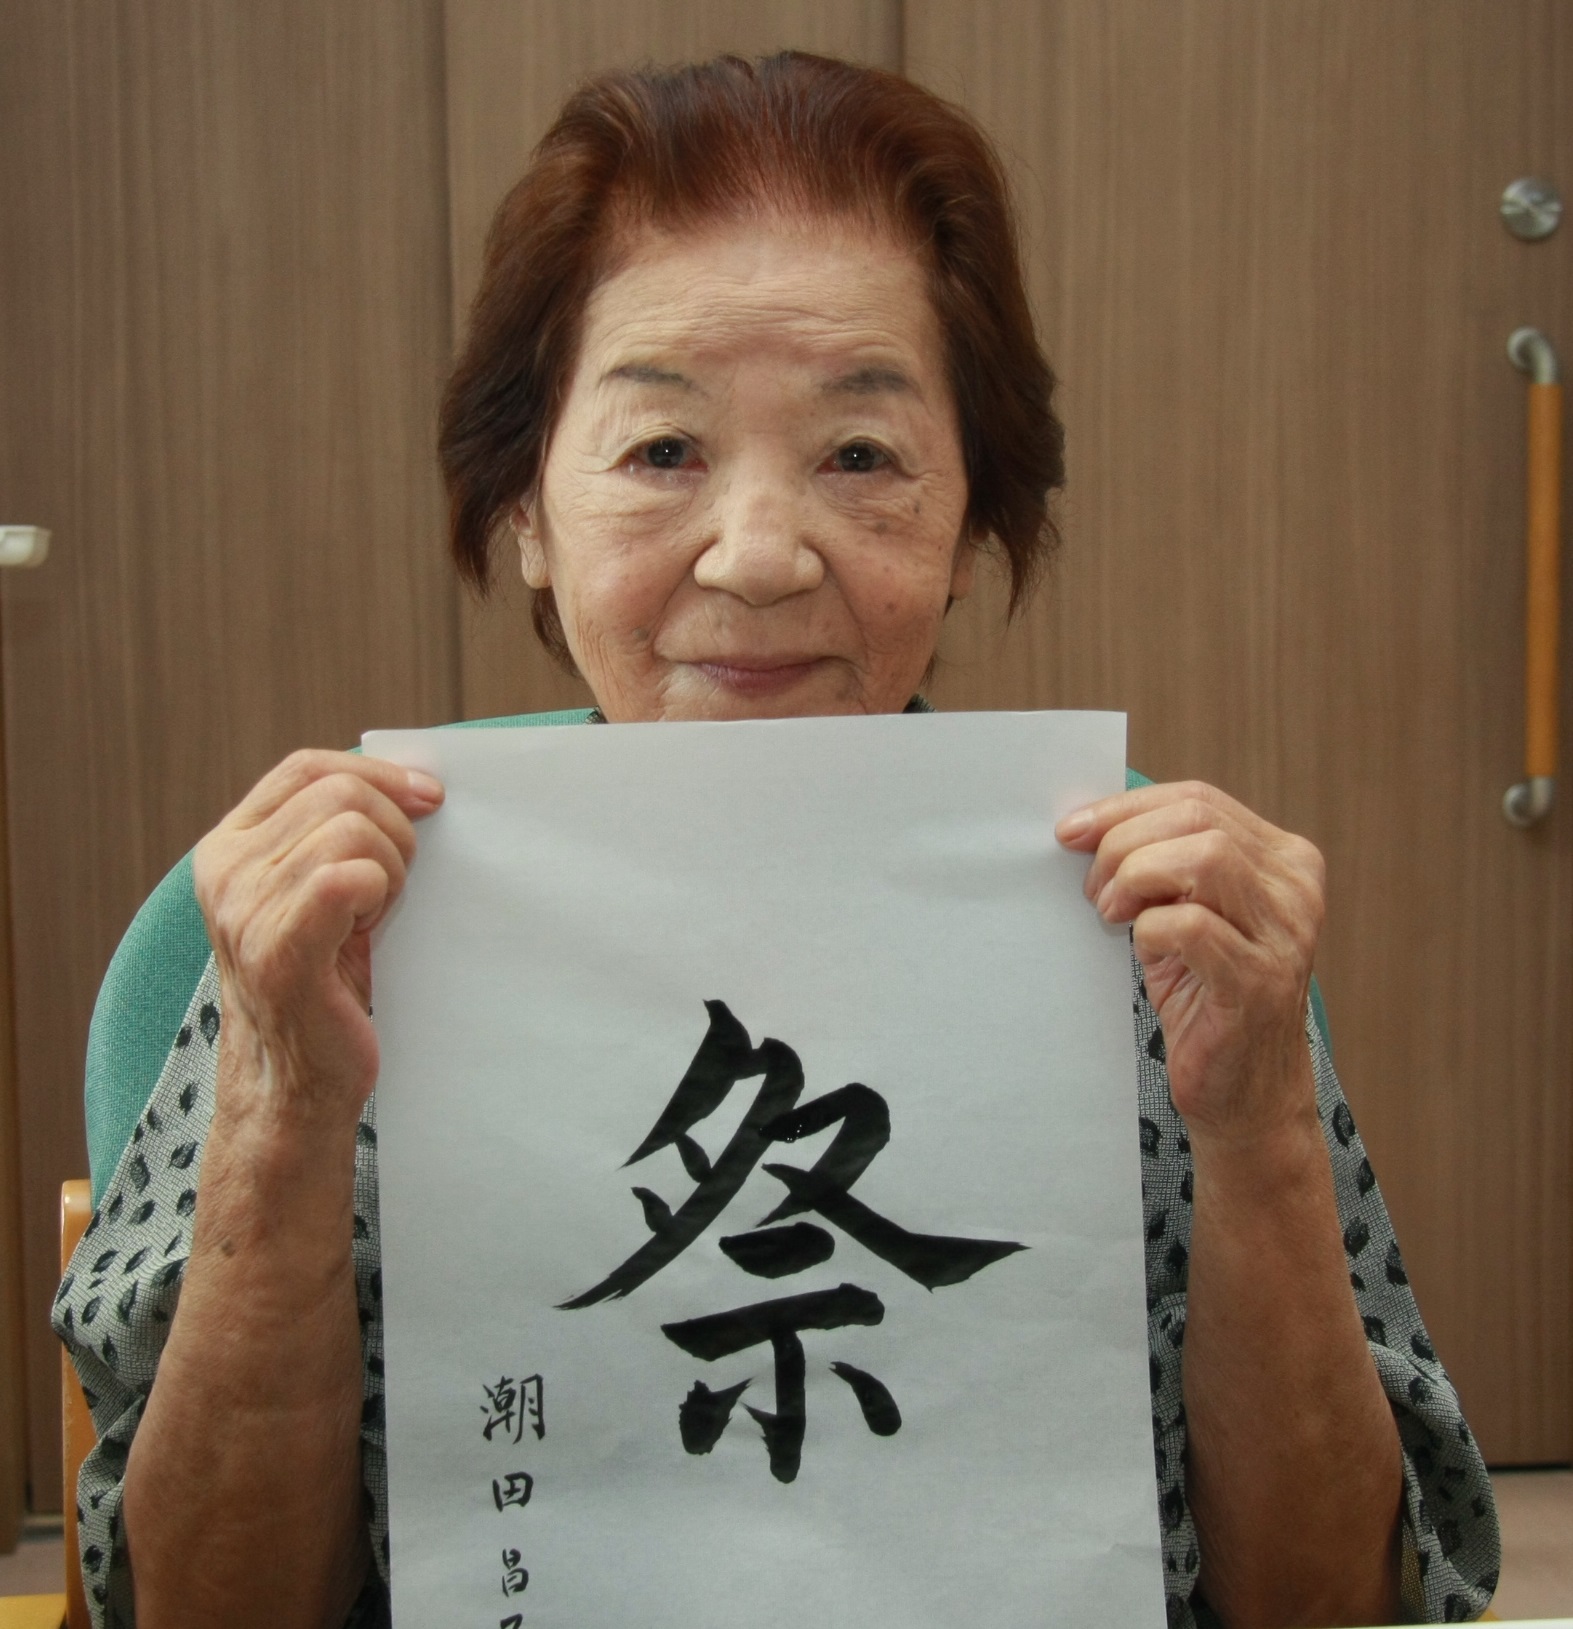 祭
潮田昌